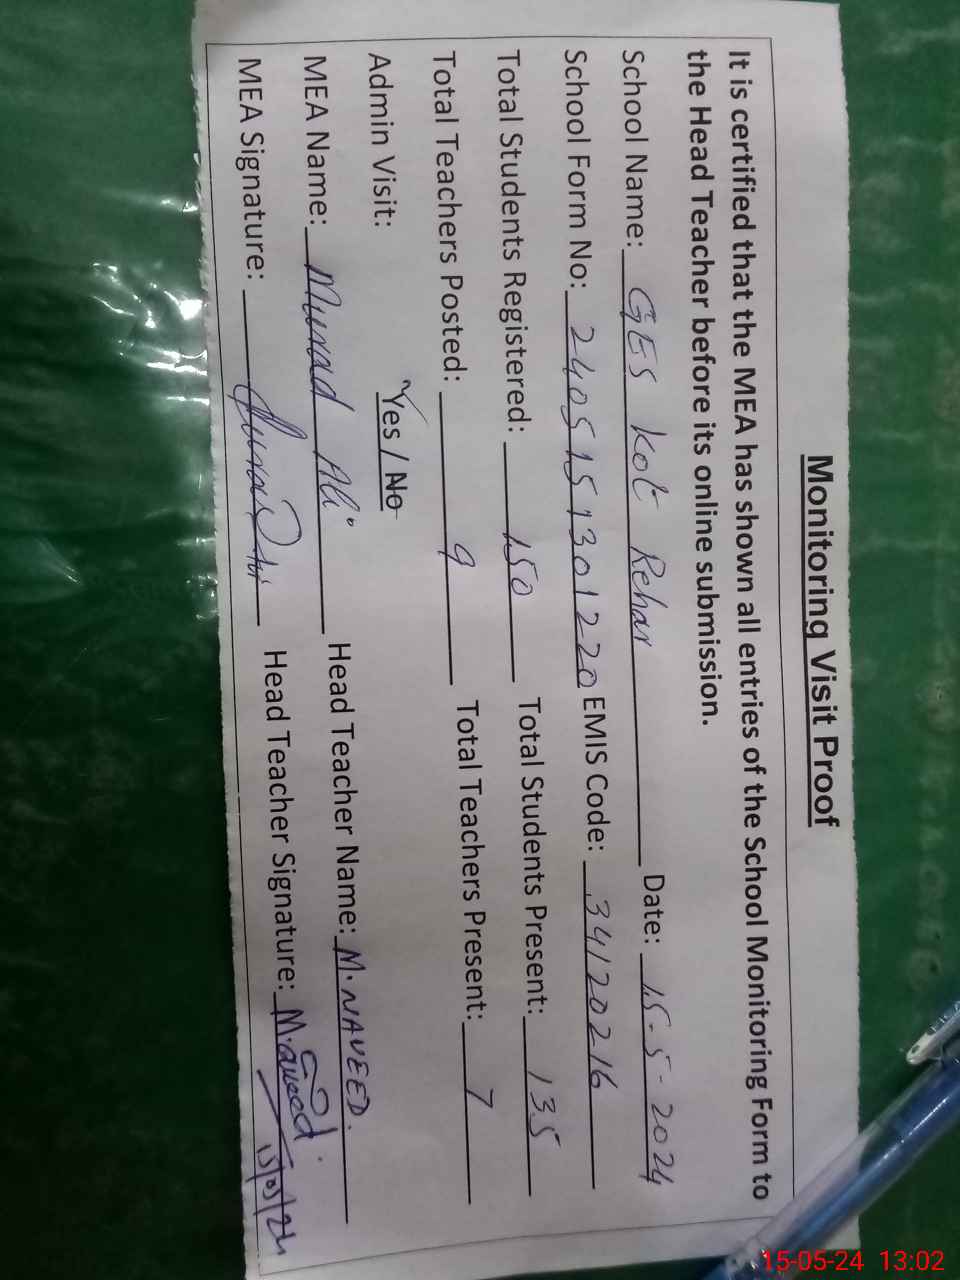 Monitoring Visit Proof
It is certified that the MEA has shown all entries of the School Monitoring Form to
the Head Teacher before its online submission.
School Name: GES Kot Rehar Date: 15-5-2024
School Form No: 2405151301220 EMIS Code: 34120216
Total Students Registered: 150 Total Students Present: 135
Total Teachers Posted: 9 Total Teachers Present: 7
Admin Visit: Yes / No
MEA Name: Murad Ali Head Teacher Name: M. NAVEED.
MEA Signature: Head Teacher Signature: M. aveed. 15/05/24
15-05-24 13:02